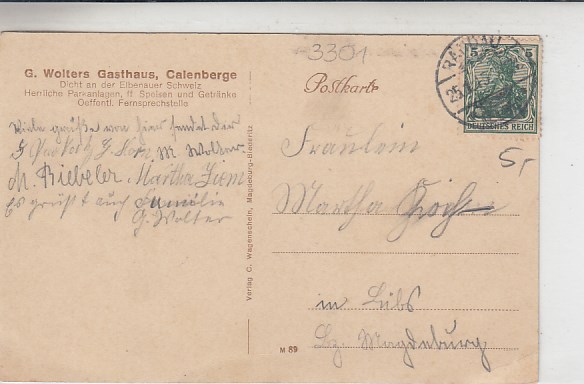 3301
G. Wolters Gasthaus, Calenberge
Dicht an der Elbenauer Schweiz
Herrliche Parkanlagen, ff Speisen und Getränke
Oeffentl. Fernsprechstelle
Postkarte
RANDAU
25.
5 5
DEUTSCHES REICH
5,-
Viele grüße von hier sendet
M. Wolter
M. Riebeler Martha Ziem
Es grüßt auch Familie
G. Wolter
Verlag C. Wagenschein, Magdeburg-Biederitz
Fräulein
Martha Koch
in Lübs
Bz. Magdeburg
M 89